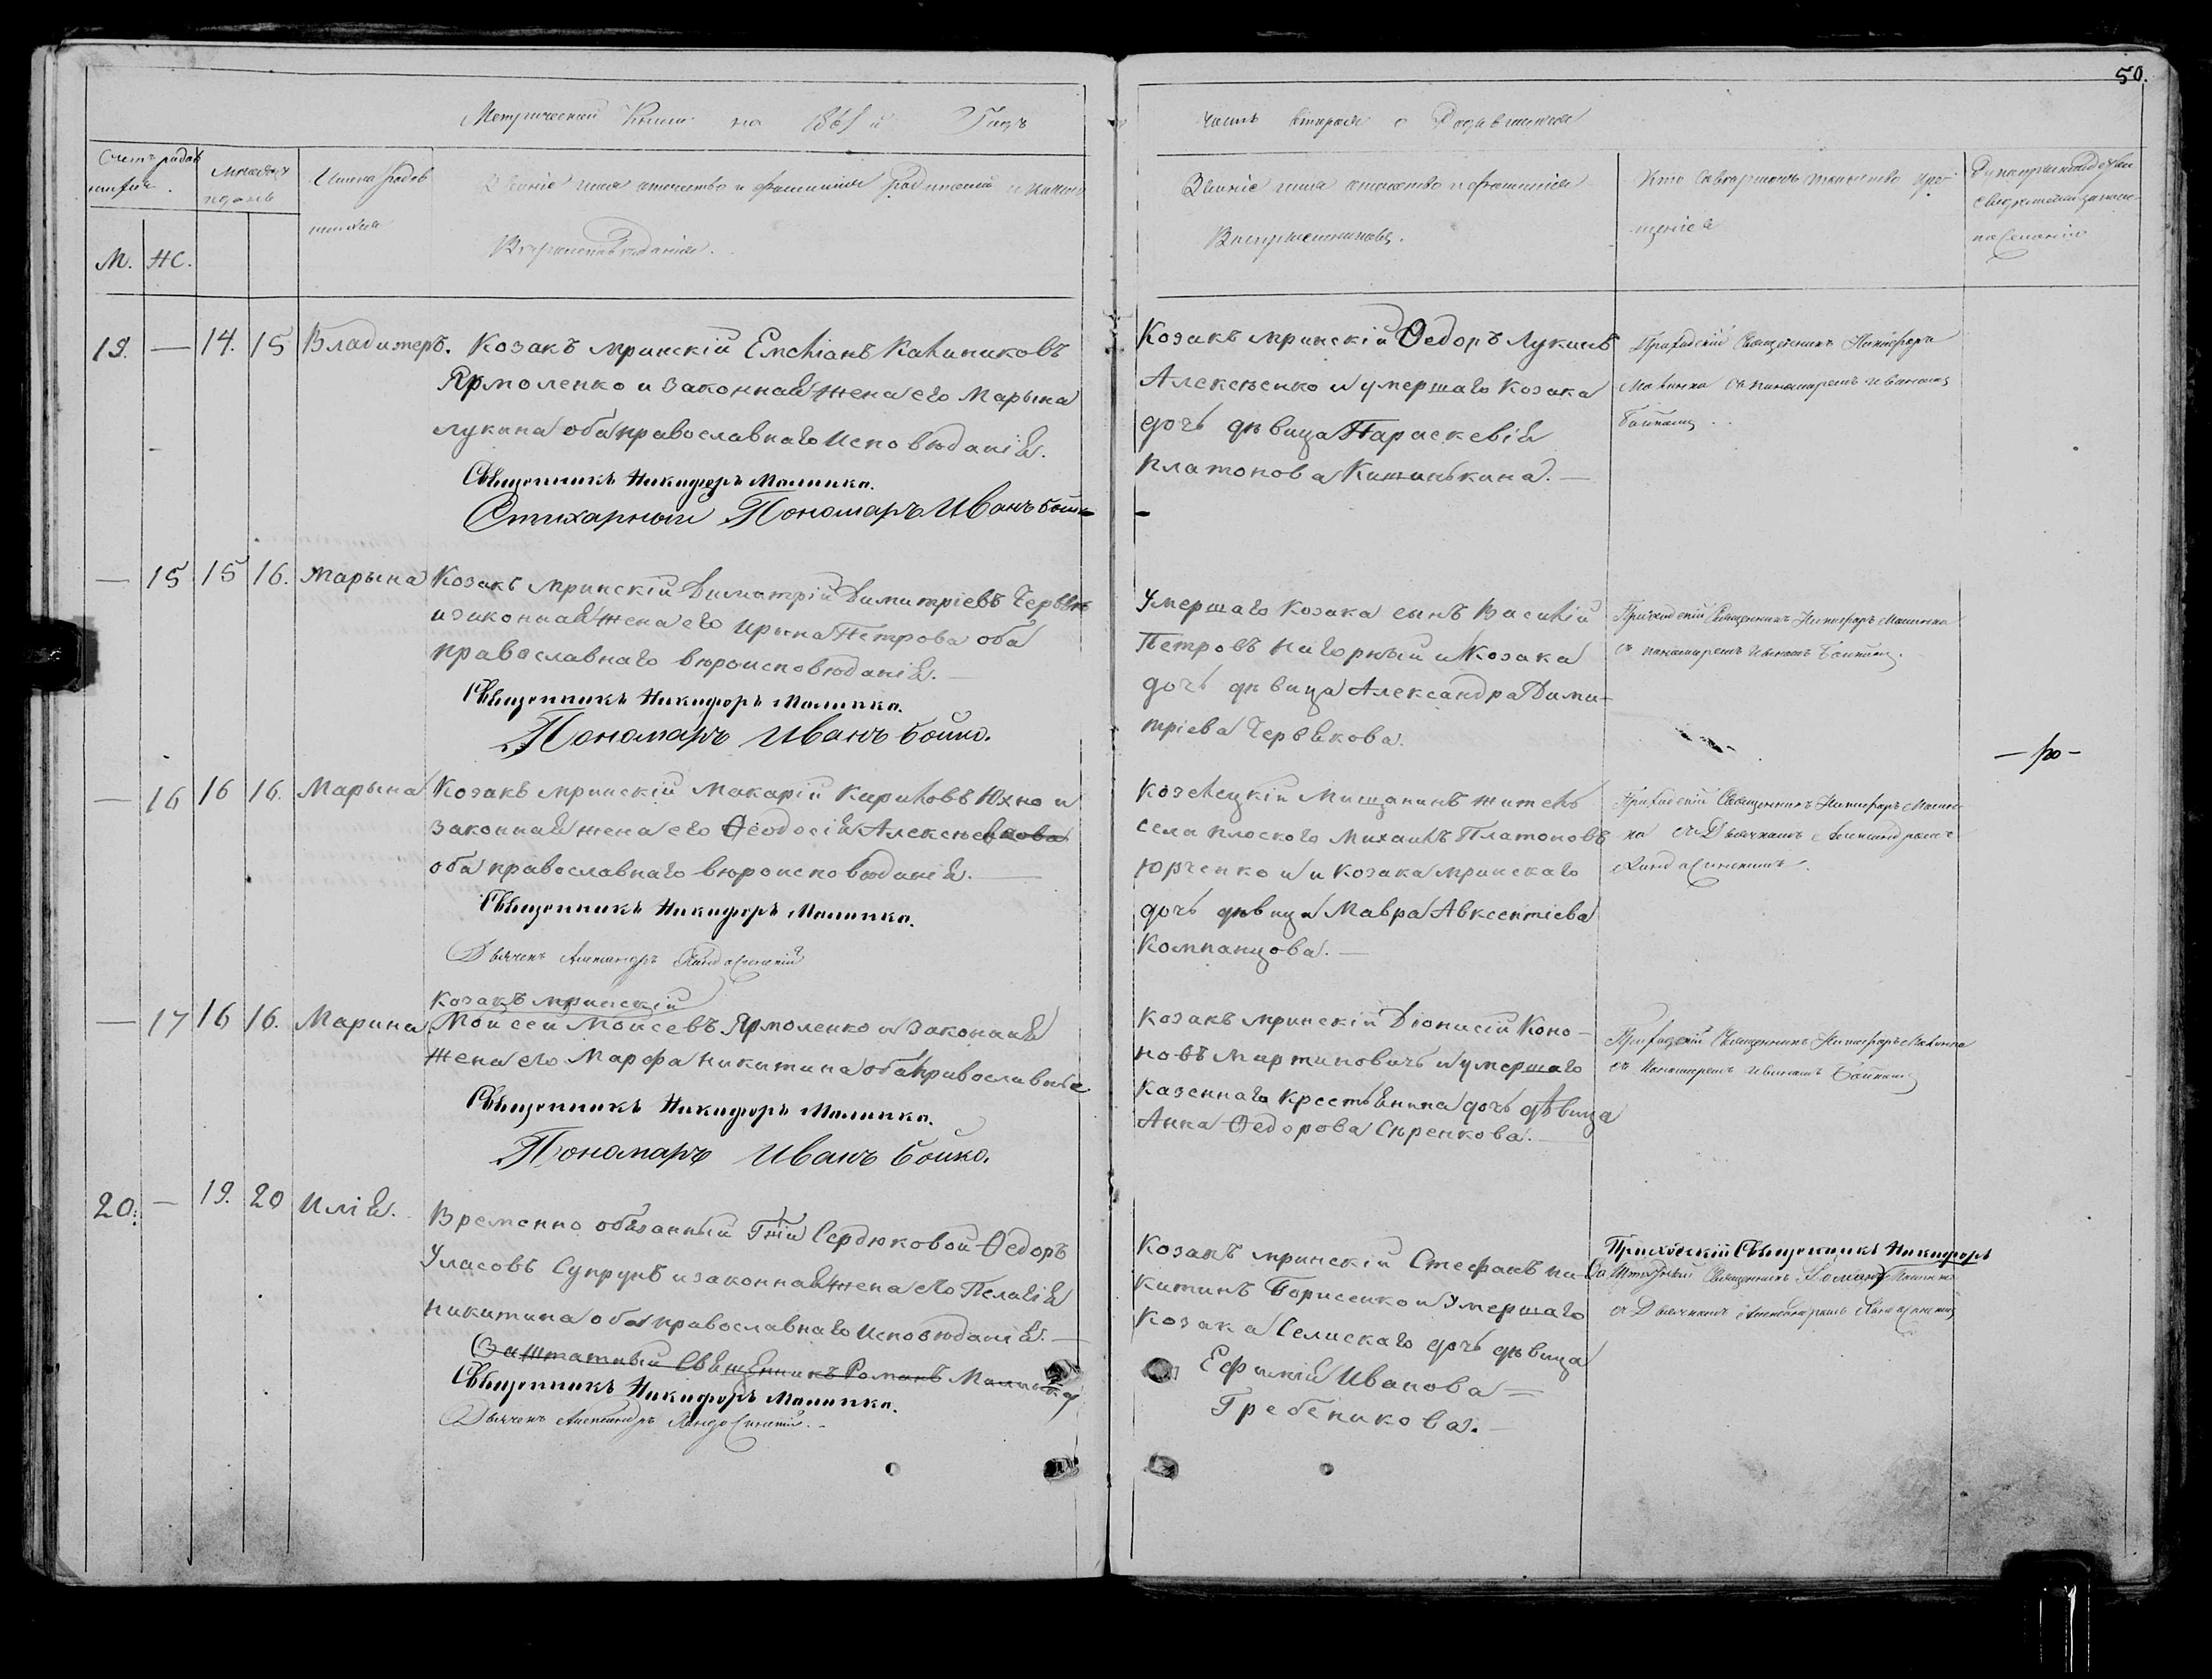 50.
Метрической Книги на 1861й Годъ
часть вторая о Родившихся
Счетъ родив
шихся.
М. Ж.
Мѣсяцъ
и день
Имена родив
шихся
Званіе имя отчество и фамилія родителей и какого
Вѣроисповѣданія.
Званіе имя отчество и фамилія
Воспріемниковъ.
Кто совершалъ таинство кре-
щенія
Рукоприкладство
свидѣтелей записи
по желанію
19. — 14. 15 Владимеръ. Козакъ мринскій Емеліанъ Калиниковъ
Ярмоленко и законная жена его Марына
Лукина оба православнаго исповѣданія.
Священникъ Никифоръ Малинка.
Стихарный Пономарь Иванъ Бойко
Козакъ мринскій Ѳедоръ Лукинъ
Алексѣенко и умершаго козака
дочь дѣвица Параскевія
Платонова Кишинькина. —
Приходскій Священникъ Никифоръ
Малинка съ пономаремъ Иваномъ
Бойкомъ
— 15 15 16. Марына Козакъ мринскій Димитрій Димитріевъ Червякъ
и законная жена его Ирына Петрова оба
православнаго вѣроисповѣданія. —
Священникъ Никифоръ Малинка.
Пономарь Иванъ Бойко.
Умершаго козака сынъ Василій
Петровъ Нагорный и козака
дочь дѣвица Александра Дими-
тріева Червякова.
Приходскій Священникъ Никифоръ Малинка
съ пономаремъ Иваномъ Бойкомъ.
— 16 16 16. Марына Козакъ мринскій Макарій Кириловъ Юхно и
законная жена его Ѳеодосія Алексѣевкова
оба православнаго вѣроисповѣданія. —
Священникъ Никифоръ Малинка.
Дьячекъ Александръ
Козелецкій Мищанинъ житель
села Плоского Михаилъ Платоновъ
Юрченко и и козака мринскаго
дочь дѣвица Мавра Авксентіева
Компанцова. —
Приходскій Священникъ Никифоръ Малин-
ка съ Дьячкомъ Александромъ
— 17 16 16. Марина Козакъ мринскій
Моисей Моисевъ Ярмоленко и законная
жена его Марфа Никитина оба православные
Священникъ Никифоръ Малинка.
Пономарь Иванъ Бойко.
Козакъ мринскій Діонисій Коно-
новъ Мартиновичъ и умершаго
казеннаго крестьянина дочь дѣвица
Анна Ѳедорова Сѣренкова. —
Приходскій Священникъ Никифоръ Малинка
съ Пономаремъ Иваномъ Бойкомъ
20. — 19. 20 Илія. Временно обязанный Гжи Сердюковой Ѳедоръ
Уласовъ Супрунъ и законная жена его Пелагія
Никитина оба православнаго исповѣданія. —
Заштатный Священникъ Романъ Малинка
Священникъ Никифоръ Малинка.
Дьячекъ Александръ
Козакъ мринскій Стефанъ Ни-
китинъ Борисенко и умершаго
козака Селискаго дочь дѣвица
Ефимія Иванова —
Гребеникова. —
Приходскій Священникъ Никифоръ
Заштатный Священникъ Романъ Малинка
съ Дьячкомъ Александромъ